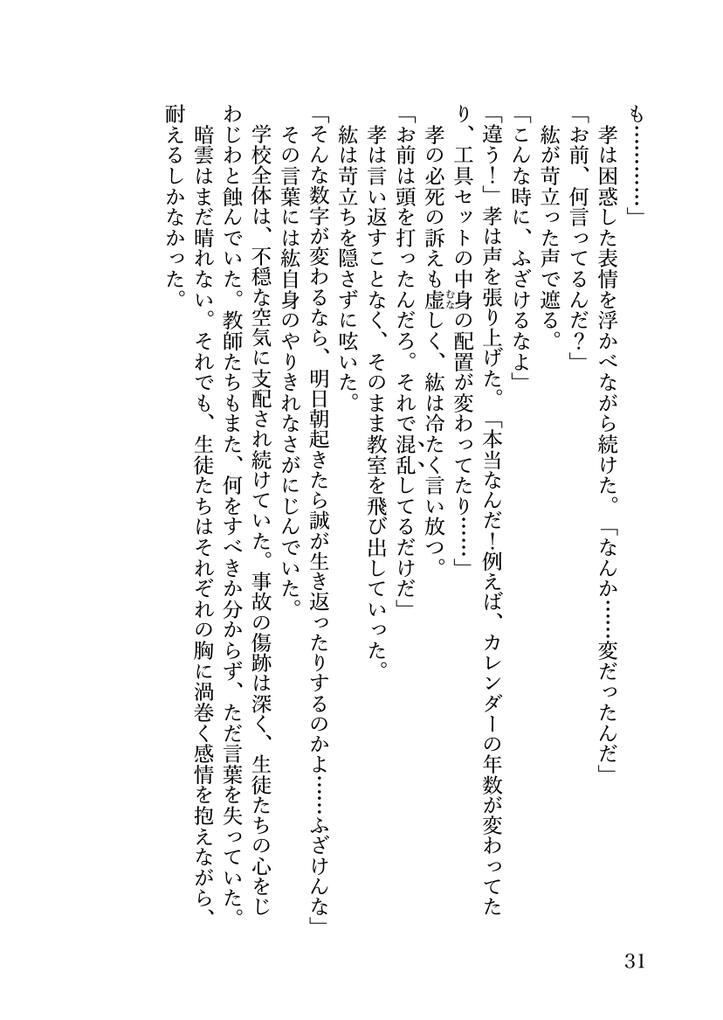 も…………」
　孝は困惑した表情を浮かべながら続けた。「なんか……変だったんだ」
「お前、何言ってるんだ？」
　紘が苛立った声で遮る。
「こんな時に、ふざけるなよ」
「違う！」孝は声を張り上げた。「本当なんだ！例えば、カレンダーの年数が変わってた
り、工具セットの中身の配置が変わってたり……」
　孝の必死の訴えも虚しく、紘は冷たく言い放つ。
「お前は頭を打ったんだろ。それで混乱してるだけだ」
　孝は言い返すことなく、そのまま教室を飛び出していった。
　紘は苛立ちを隠さずに呟いた。
「そんな数字が変わるなら、明日朝起きたら誠が生き返ったりするのかよ……ふざけんな」
　その言葉には紘自身のやりきれなさがにじんでいた。
　学校全体は、不穏な空気に支配され続けていた。事故の傷跡は深く、生徒たちの心をじ
わじわと蝕んでいた。教師たちもまた、何をすべきか分からず、ただ言葉を失っていた。
　暗雲はまだ晴れない。それでも、生徒たちはそれぞれの胸に渦巻く感情を抱えながら、
耐えるしかなかった。
むな
31